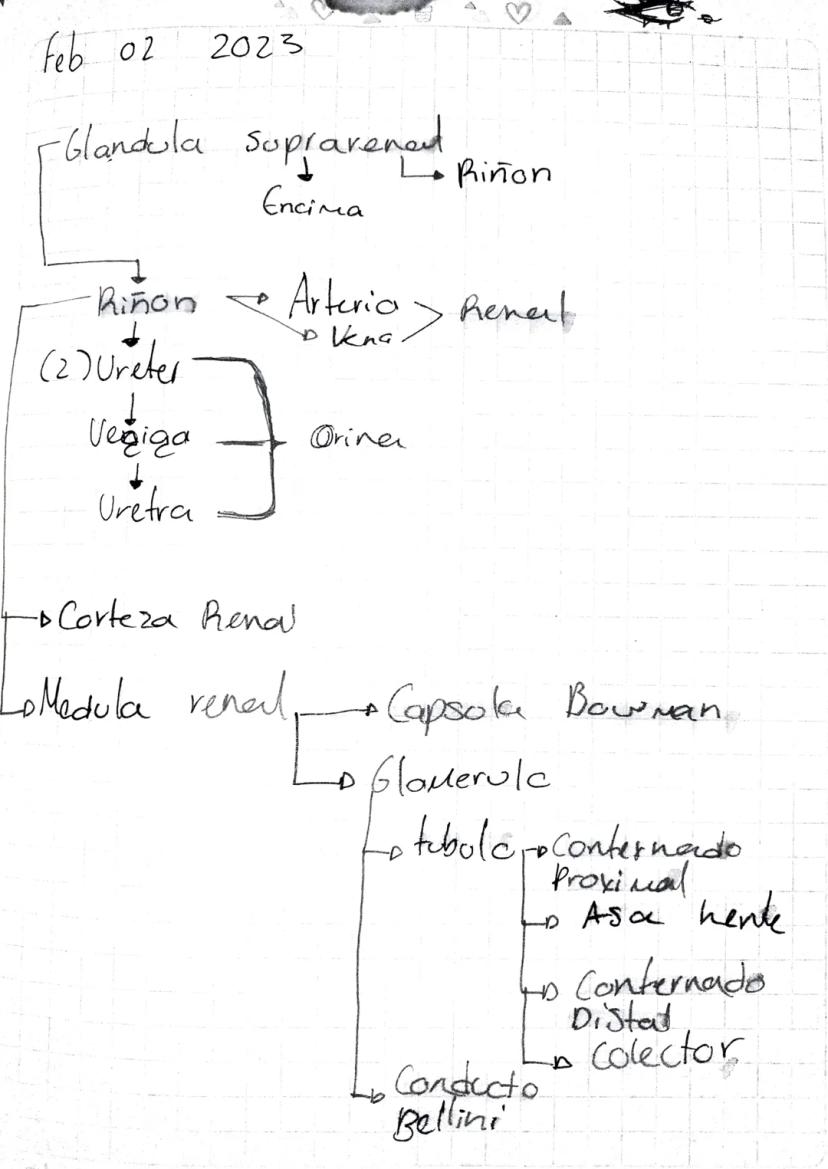 Feb 02 2023
Glandula suprarenal
Riñon
Encima
Riñon
Arteria
Renal
Vena
(2) Ureter
Vegiga
Orina
Uretra
Corteza Renal
Medula renal
Capsola Bowman
Glomerulo
tubolo
Conternado
Proximal
Asa henle
Conternado
Distal
Colector
Conducto
Bellini